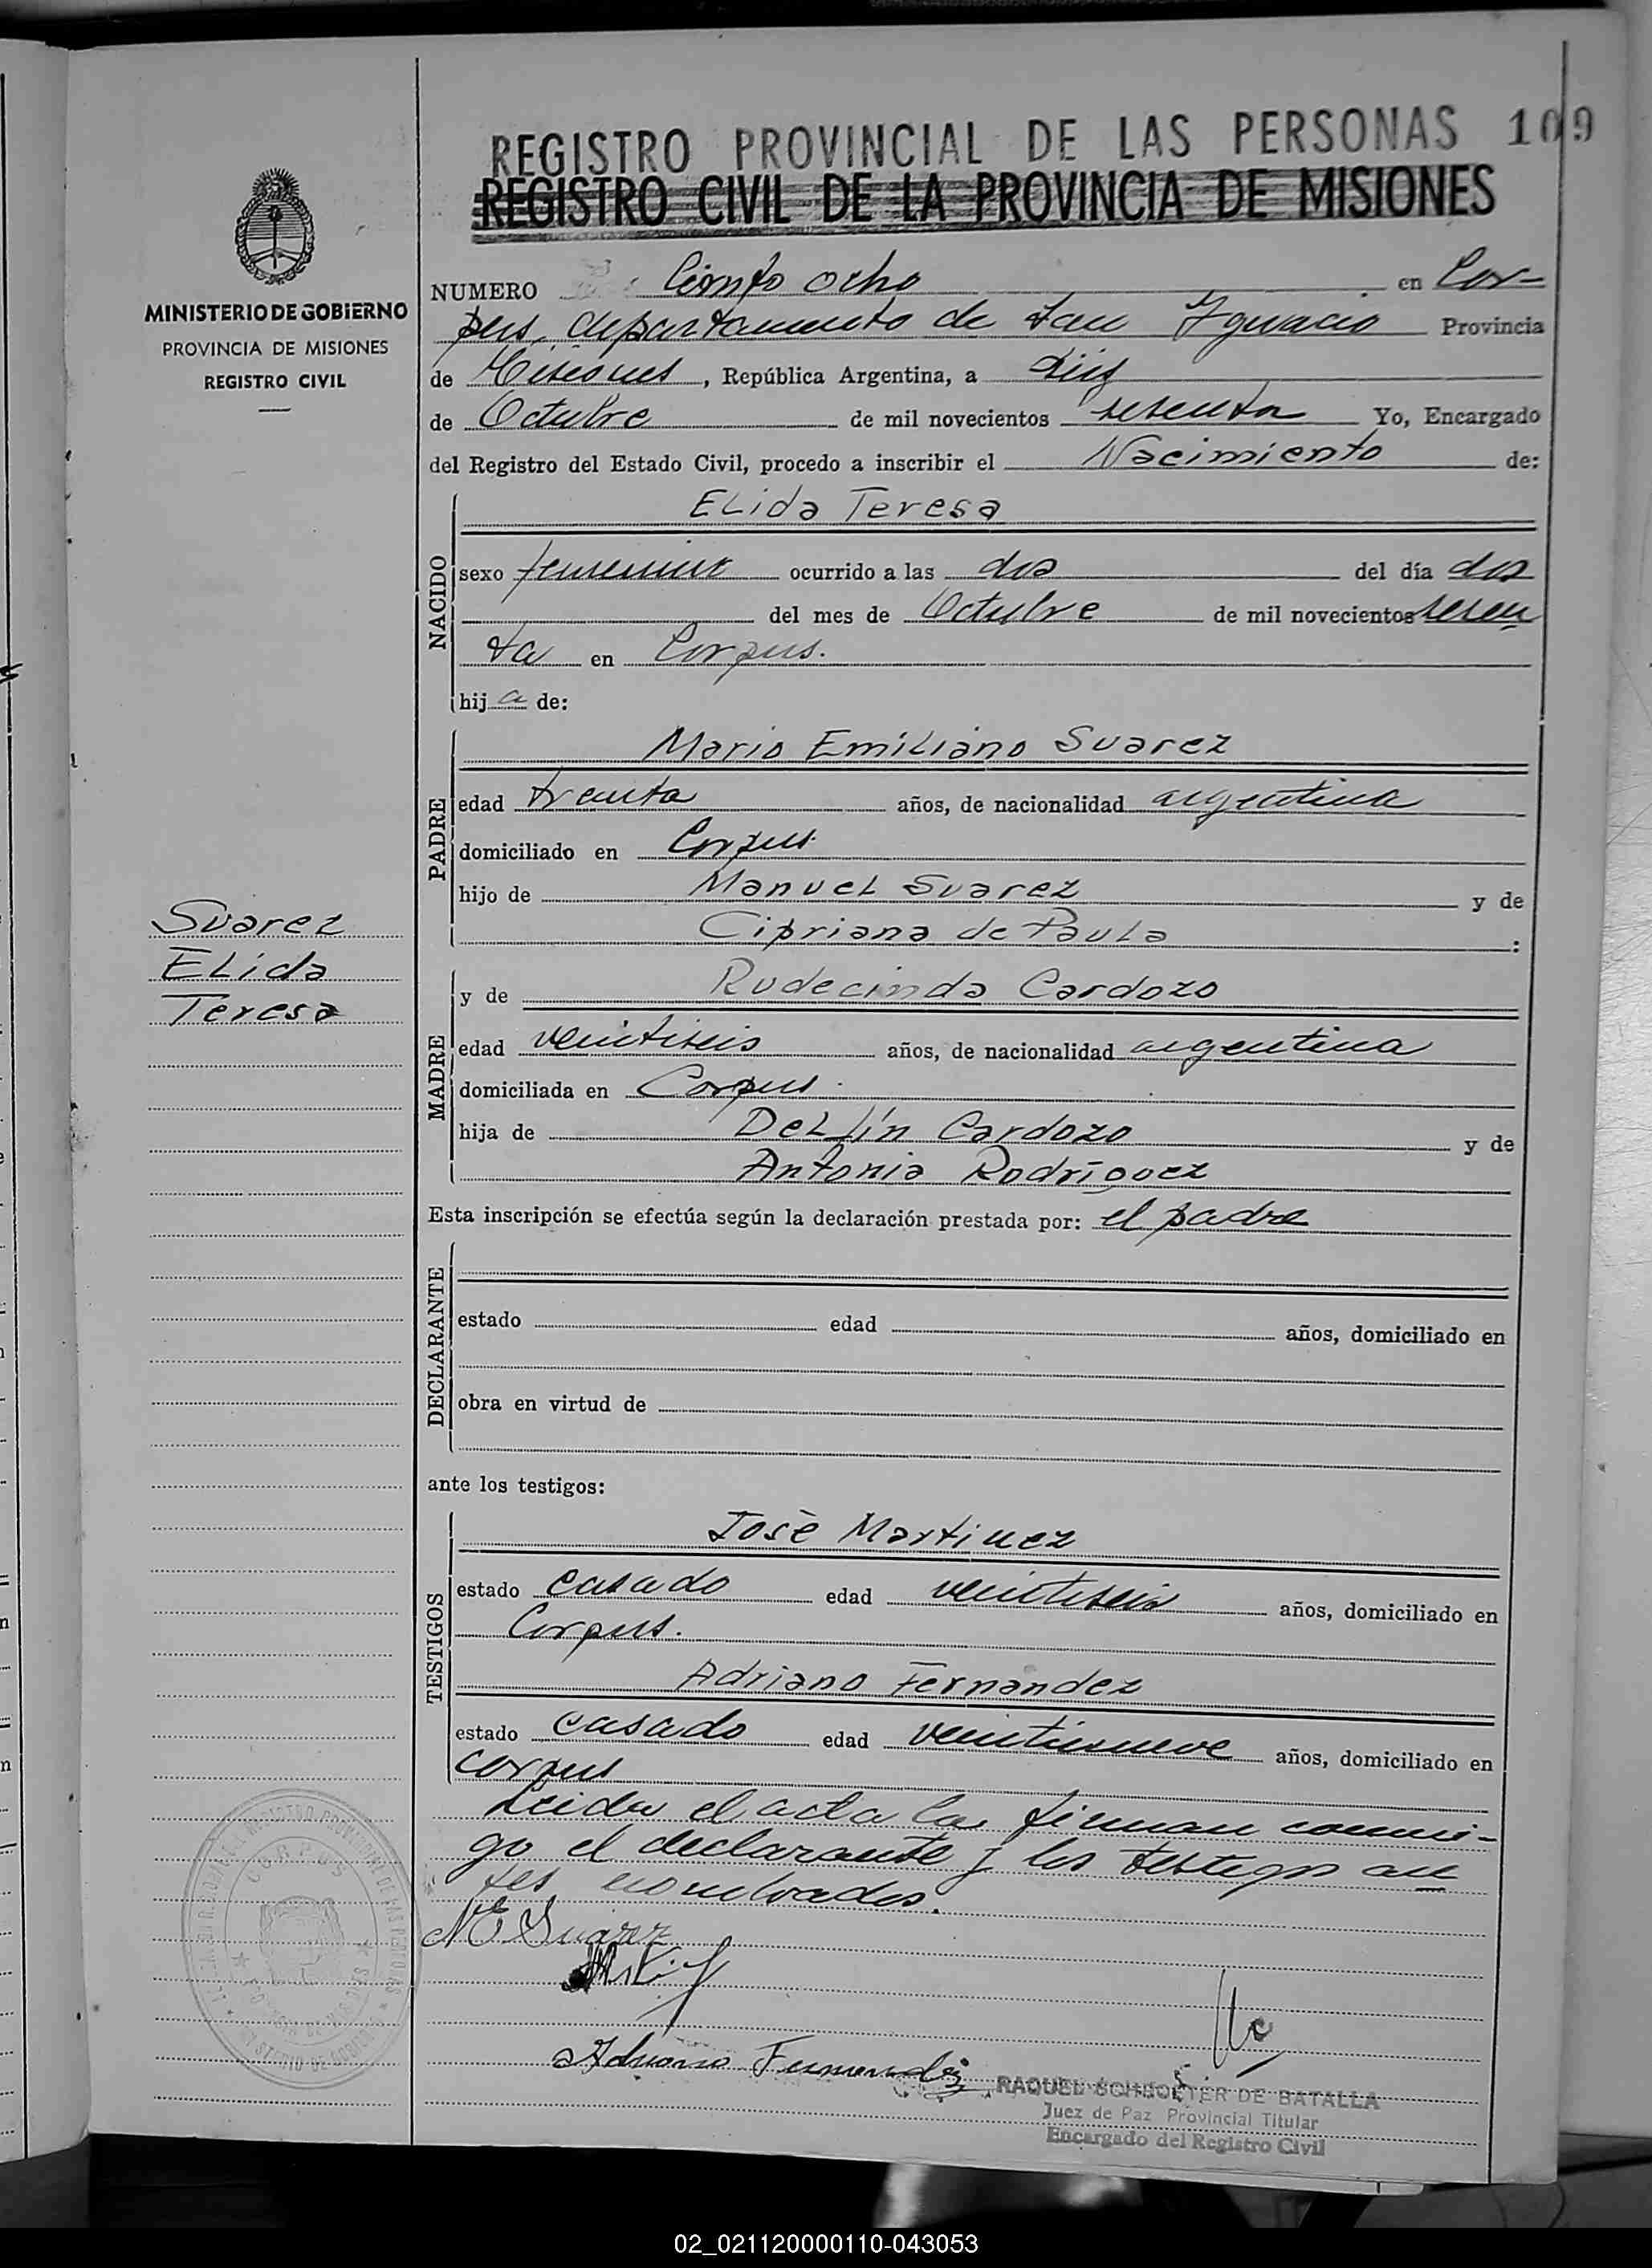 REGISTRO PROVINCIAL DE LAS PERSONAS 109
REGISTRO CIVIL DE LA PROVINCIA DE MISIONES
MINISTERIO DE GOBIERNO
PROVINCIA DE MISIONES
REGISTRO CIVIL
NUMERO Ciento ocho en Cor-
pus, departamento de San Ignacio Provincia
de Misiones, República Argentina, a diez
de Octubre de mil novecientos sesenta Yo, Encargado
del Registro del Estado Civil, procedo a inscribir el Nacimiento de:
NACIDO
Elida Teresa
sexo femenino ocurrido a las dos del día dos
del mes de Octubre de mil novecientos sesen
ta en Corpus.
hija de:
PADRE
Mario Emiliano Suarez
edad treinta años, de nacionalidad argentina
domiciliado en Corpus
hijo de Manuel Suarez y de
Cipriana de Paula :
Suarez
Elida
Teresa
MADRE
y de Rudecinda Cardozo
edad veintiseis años, de nacionalidad argentina
domiciliada en Corpus.
hija de Delfín Cardozo y de
Antonia Rodríguez
Esta inscripción se efectúa según la declaración prestada por: el padre
DECLARANTE
estado edad años, domiciliado en
obra en virtud de
ante los testigos:
TESTIGOS
José Martinez
estado casado edad veintiseis años, domiciliado en
Corpus.
Adriano Fernandez
estado casado edad veintinueve años, domiciliado en
Corpus
Leida el acta la firman conmi-
go el declarante y los testigos an
tes nombrados.
CORPUS
M E Suarez
Adriano Fernandez
RAQUEL SCHROETER DE BATALLA
Juez de Paz Provincial Titular
Encargado del Registro Civil
02_021120000110-043053